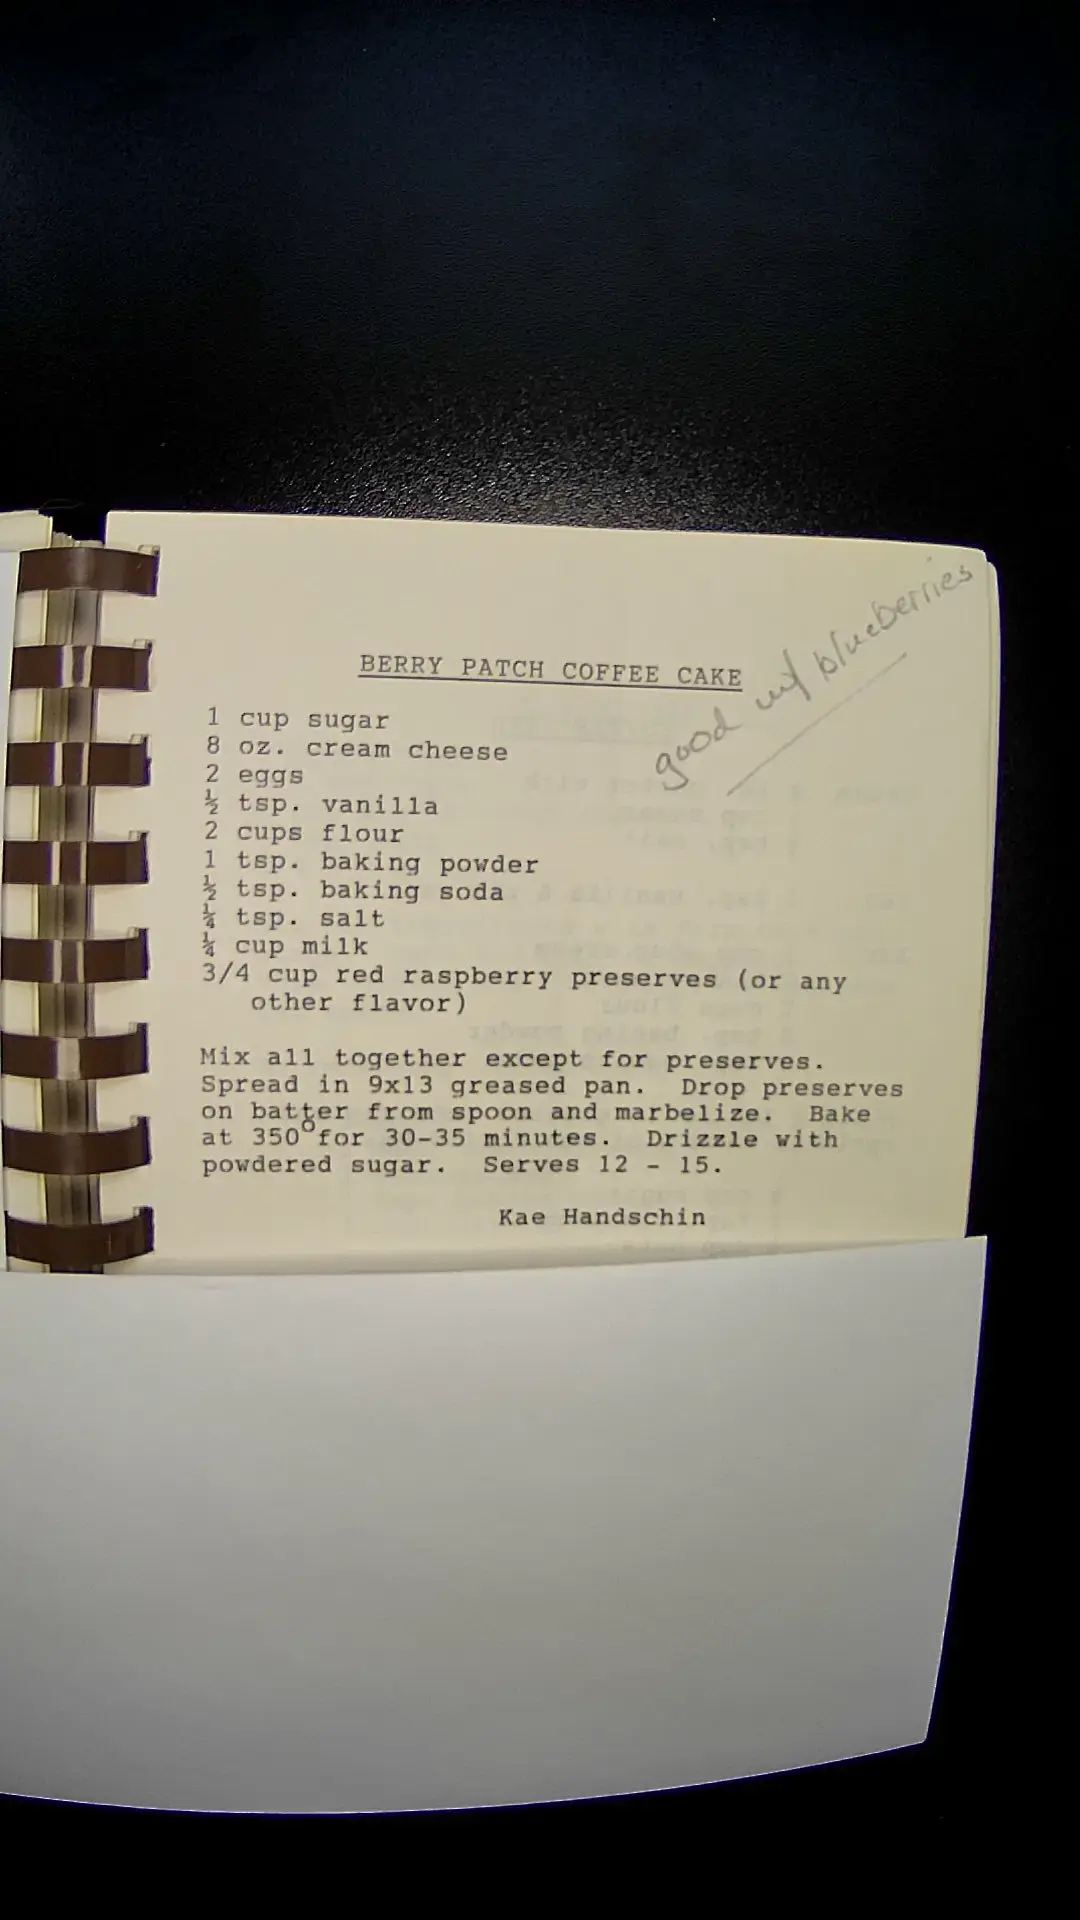 good w/ blueberries
BERRY PATCH COFFEE CAKE
1 cup sugar
8 oz. cream cheese
2 eggs
½ tsp. vanilla
2 cups flour
1 tsp. baking powder
½ tsp. baking soda
¼ tsp. salt
¼ cup milk
3/4 cup red raspberry preserves (or any
other flavor)
Mix all together except for preserves.
Spread in 9x13 greased pan. Drop preserves
on batter from spoon and marbelize. Bake
at 350° for 30-35 minutes. Drizzle with
powdered sugar. Serves 12 - 15.
Kae Handschin